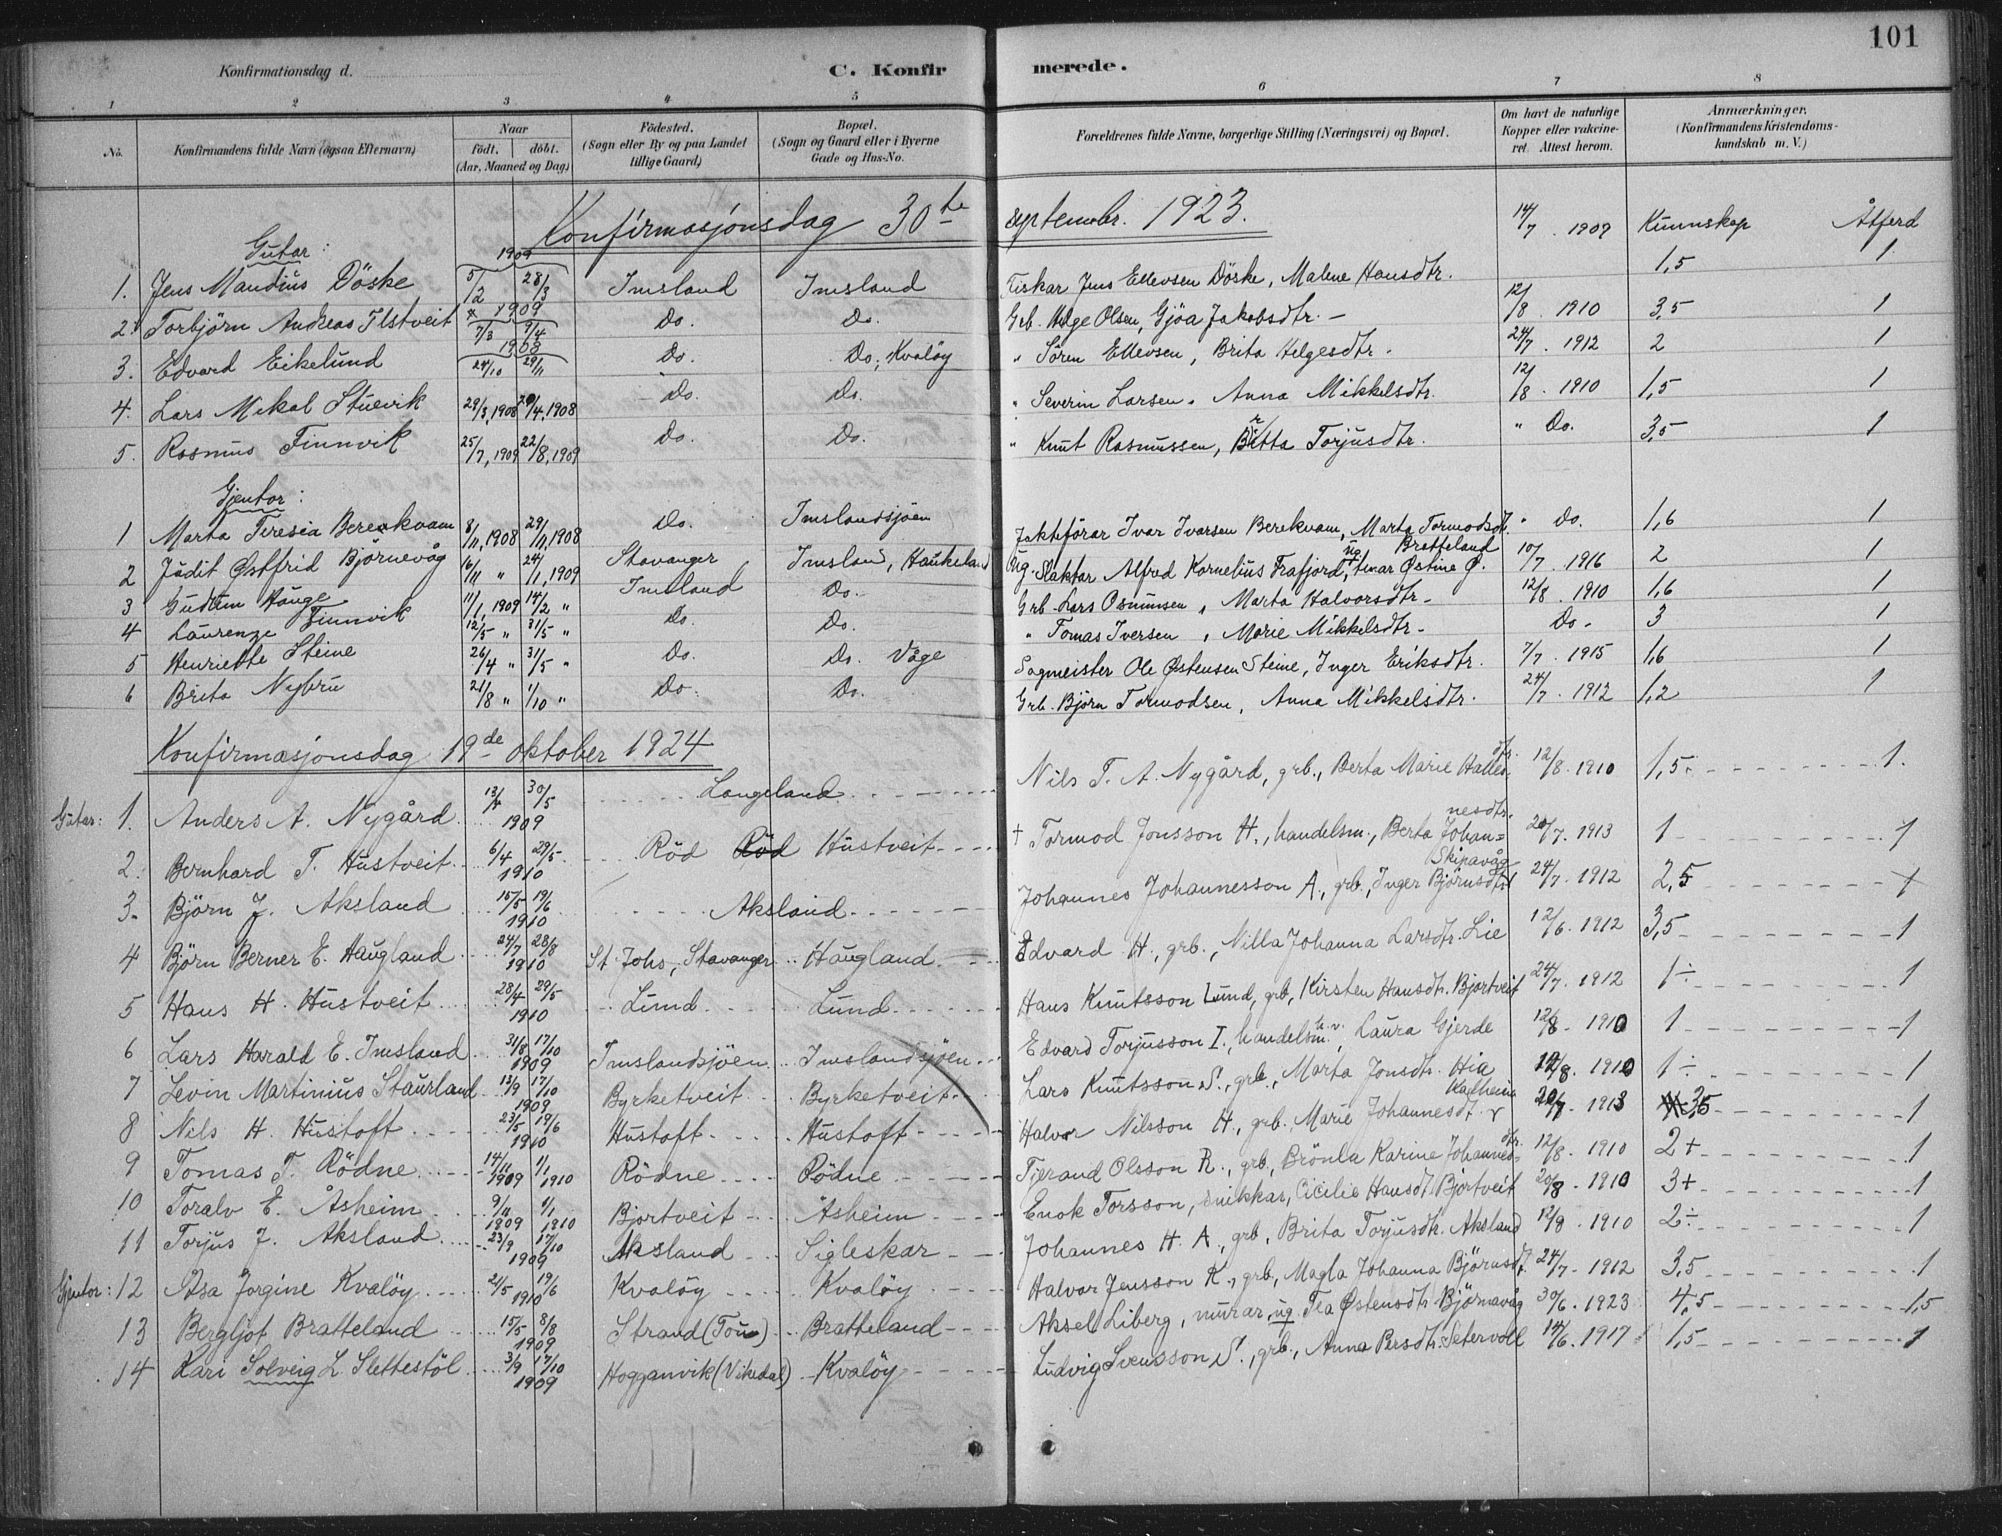 101
Konfirmationsdag d.
C. Konfirmerede.
1 2 3 4 5 6 7 8
No. Konfirmandens fulde Navn (ogsaa Efternavn) Naar født. døbt. (Aar, Maaned og Dag) Födested. (Sogn eller By og paa Landet tillige Gaard) Bopæl. (Sogn og Gaard eller i Byerne Gade og Hus-No. Forældrenes fulde Navne, borgerlige Stilling (Næringsvei) og Bopæl. Om havt de naturlige Kopper eller vakcineret. Attest herom. Anmærkninger. (Konfirmandens Kristendomskundskab m. V.)
Konfirmasjonsdag 30te september 1923.
Kunnskap Åtferd
Gutar:
1. Jens Maudius Döske 1909 5/2 28/3 Imsland Imsland Fiskar Jens Ellevsen Döske, Malene Hansdtr. 14/7 . 1909 1,5 1
2. Torbjörn Andreas Ilstveit 1909 7/3 9/4 Do. Do. Grb. Helge Olsen, Gjöa Jakobsdtr. 12/8 . 1910 3,5 1
3. Edvard Eikelund 1908 24/10 29/11 Do. Do, Kvalöy " Sören Ellevsen, Brita Helgesdtr. 24/7 . 1912 2 1
4. Lars Mikal Stuevik 29/3, 1908 20/4, 1908 Do. Do. " Severin Larsen, Anna Mikkelsdtr. 12/8 . 1910 1,5 1
5. Rasmus Finnvik 25/7, 1909 22/8, 1909 Do. Do. " Knut Rasmussen, Britta Torjusdtr. " Do. 3,5 1
Gjentor:
1 Marta Teresia Berekvam 8/11, 1908 29/11, 1908 Do. Imslandsjöen Jaktiförar Ivar Ivarsen Berekvam, Marta Tormodsdtr. " Do. 1,6 1
2 Judit Østfrid Björnevåg 16/11 " 24/1, 1909 Stavanger Imsland, Haukeland Ug. Slaktar Alfred Kornelius Frafjord, ug tenar Østine Ø. Bratteland 10/7 . 1916 2 1
3 Gudrun Hauge 11/1, 1909 14/2 " Imsland Do. Grb. Lars Osmunsen, Marta Halvorsdtr. 12/8 . 1910 1,6 1
4 Laurenze Finnvik 12/5 " 31/5 " Do. Do. " Tomas Iversen, Marie Mikkelsdtr. Do. 3 1
5 Henriette Steine 26/4 " 31/5 " Do. Do. Våge Sagmeister Ole Østensen Steine, Inger Eriksdtr. 7/7 . 1915 1,6 1
6 Brita Nybru 21/8 " 1/10 " Do. Do. Grb. Björn Tormodsen, Anna Mikkelsdtr. 24/7 . 1912 1,2 1
Konfirmasjonsdag 19de oktober 1924
Gutar: 1. Anders A. Nygård 13/4 30/5 1909 Langeland Nils T. A. Nygård, grb., Berta Marie Halles dtr. 12/8 . 1910 1,5 1.
2. Bernhard T. Hustveit 6/4 29/5 1910 Röd Röd Hustveit + Tormod Jonsson H., handelsm., Berta Johannesdtr. 20/7 . 1913 1 1
3. Björn J. Aksland 15/5 19/6 1910 Aksland Johannes Johannesson A., grb., Inger Björnsdtr. Skipavåg 24/7 . 1912 2,5 1
4 Björn Berner E. Haugland 24/7 28/8 1910 St. Johs, Stavanger Haugland Edvard H., grb., Nilla Johanna Larsdtr. Lie 12/6 . 1912 3,5 1
5 Hans H. Hustveit 28/4 29/5 1910 Lund Lund Hans Knutsson Lund, grb, Kirsten Hansdtr. Bjortveit 24/7 . 1912 1÷ 1
6 Lars Harald E. Imsland 31/8 17/10 1909 Imslandsjöen Imslandsjöen Edvard Torjusson I., handelsm., Laura Gjerde 12/8 . 1910 1 1
7 Levin Martinius Staurland 13/9 17/10 1909 Byrketveit Byrketveit Lars Knutsson S., grb., Marta Jonsdtr. Hia 12/8 . 1910 1÷ 1
8 Nils H. Hustoft 23/5 19/6 1910 Hustoft Hustoft Halvor Nilsson H., grb. Marie Johannesdt. 20/7 . 1913 3,5 1
9 Tomas T. Rödne 14/11 1909 1/1 1910 Rödne Rödne Tjerand Olsson R., grb, Brönla Karine Johannes dtr. 12/8 . 1910 2+ 1
10 Toralv E. Åsheim 9/11 1909 1/1 1910 Bjortveit Åsheim Enok Torsson, snikkar, Cicilie Hansdt. Bjortveit 20/8 . 1910 3+ 1
11 Torjus J. Aksland 23/9 17/10 1909 Aksland Sigleskar Johannes H. A., grb, Brita Torjusdtr. Aksland 12/8 . 1910 2÷ 1
Gjentor: 12 Åsa Jorgine Kvalöy 21/5 19/6 1910 Kvalöy Kvalöy Halvor Jensson K., grb, Magla Johanna Björnsdt. 24/7 . 1912 3,5 1
13 Bergljot Bratteland 15/5 8/8 1909 Strand (Tou) Bratteland Aksel Liberg, murar, ug. Tea Østensdtr. Björnavåg 30/6 . 1923 4,5 1,5
14 Kari Solveig L. Slettestöl 3/9 17/10 1909 Hogganvik (Vikedal) Kvalöy Ludvig Svensson S., grb., Anna Persdtr. Setervoll 14/6 . 1917 1,5 1